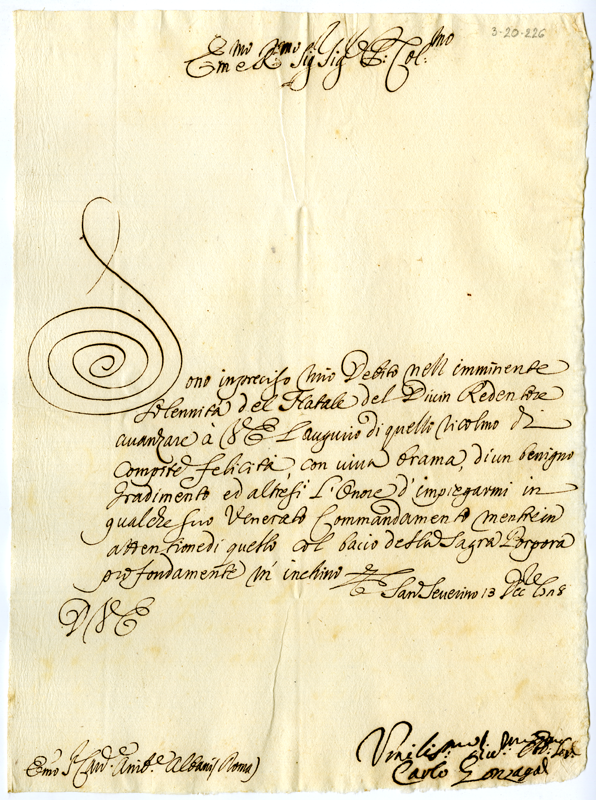 3-20-226
Emo e Rmo Sig Sig P: Col:mo
Sono inpreciso mio Debito nell imminente
solennità del Natale del Divin Redentore
avanzare à V E L'augurio di quello Ricolmo di
Compite felicità, con viva brama, di un benigno
Gradimento ed altresi L'Onore d'impiegarmi in
qualche suo Venerato Commandamento mentre in
attentione di quello col bacio della Sagra Porpora
profondamente m'inchino
San Severino 13 Dec.
D V E
Emo S Card.e Anib.e Albani (Roma)
Carlo Gonzaga